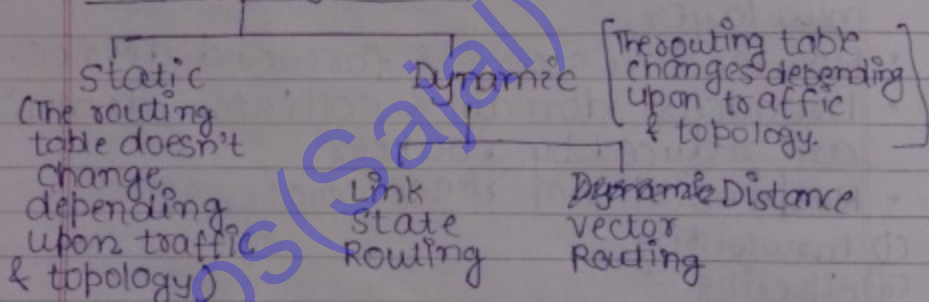 Static
(The routing
table doesn't
change
depending
upon traffic
& topology)
Dynamic
[The routing table
changes depending
upon traffic
& topology.]
Link
State
Routing
Distance
vector
Routing
os(Sajal)